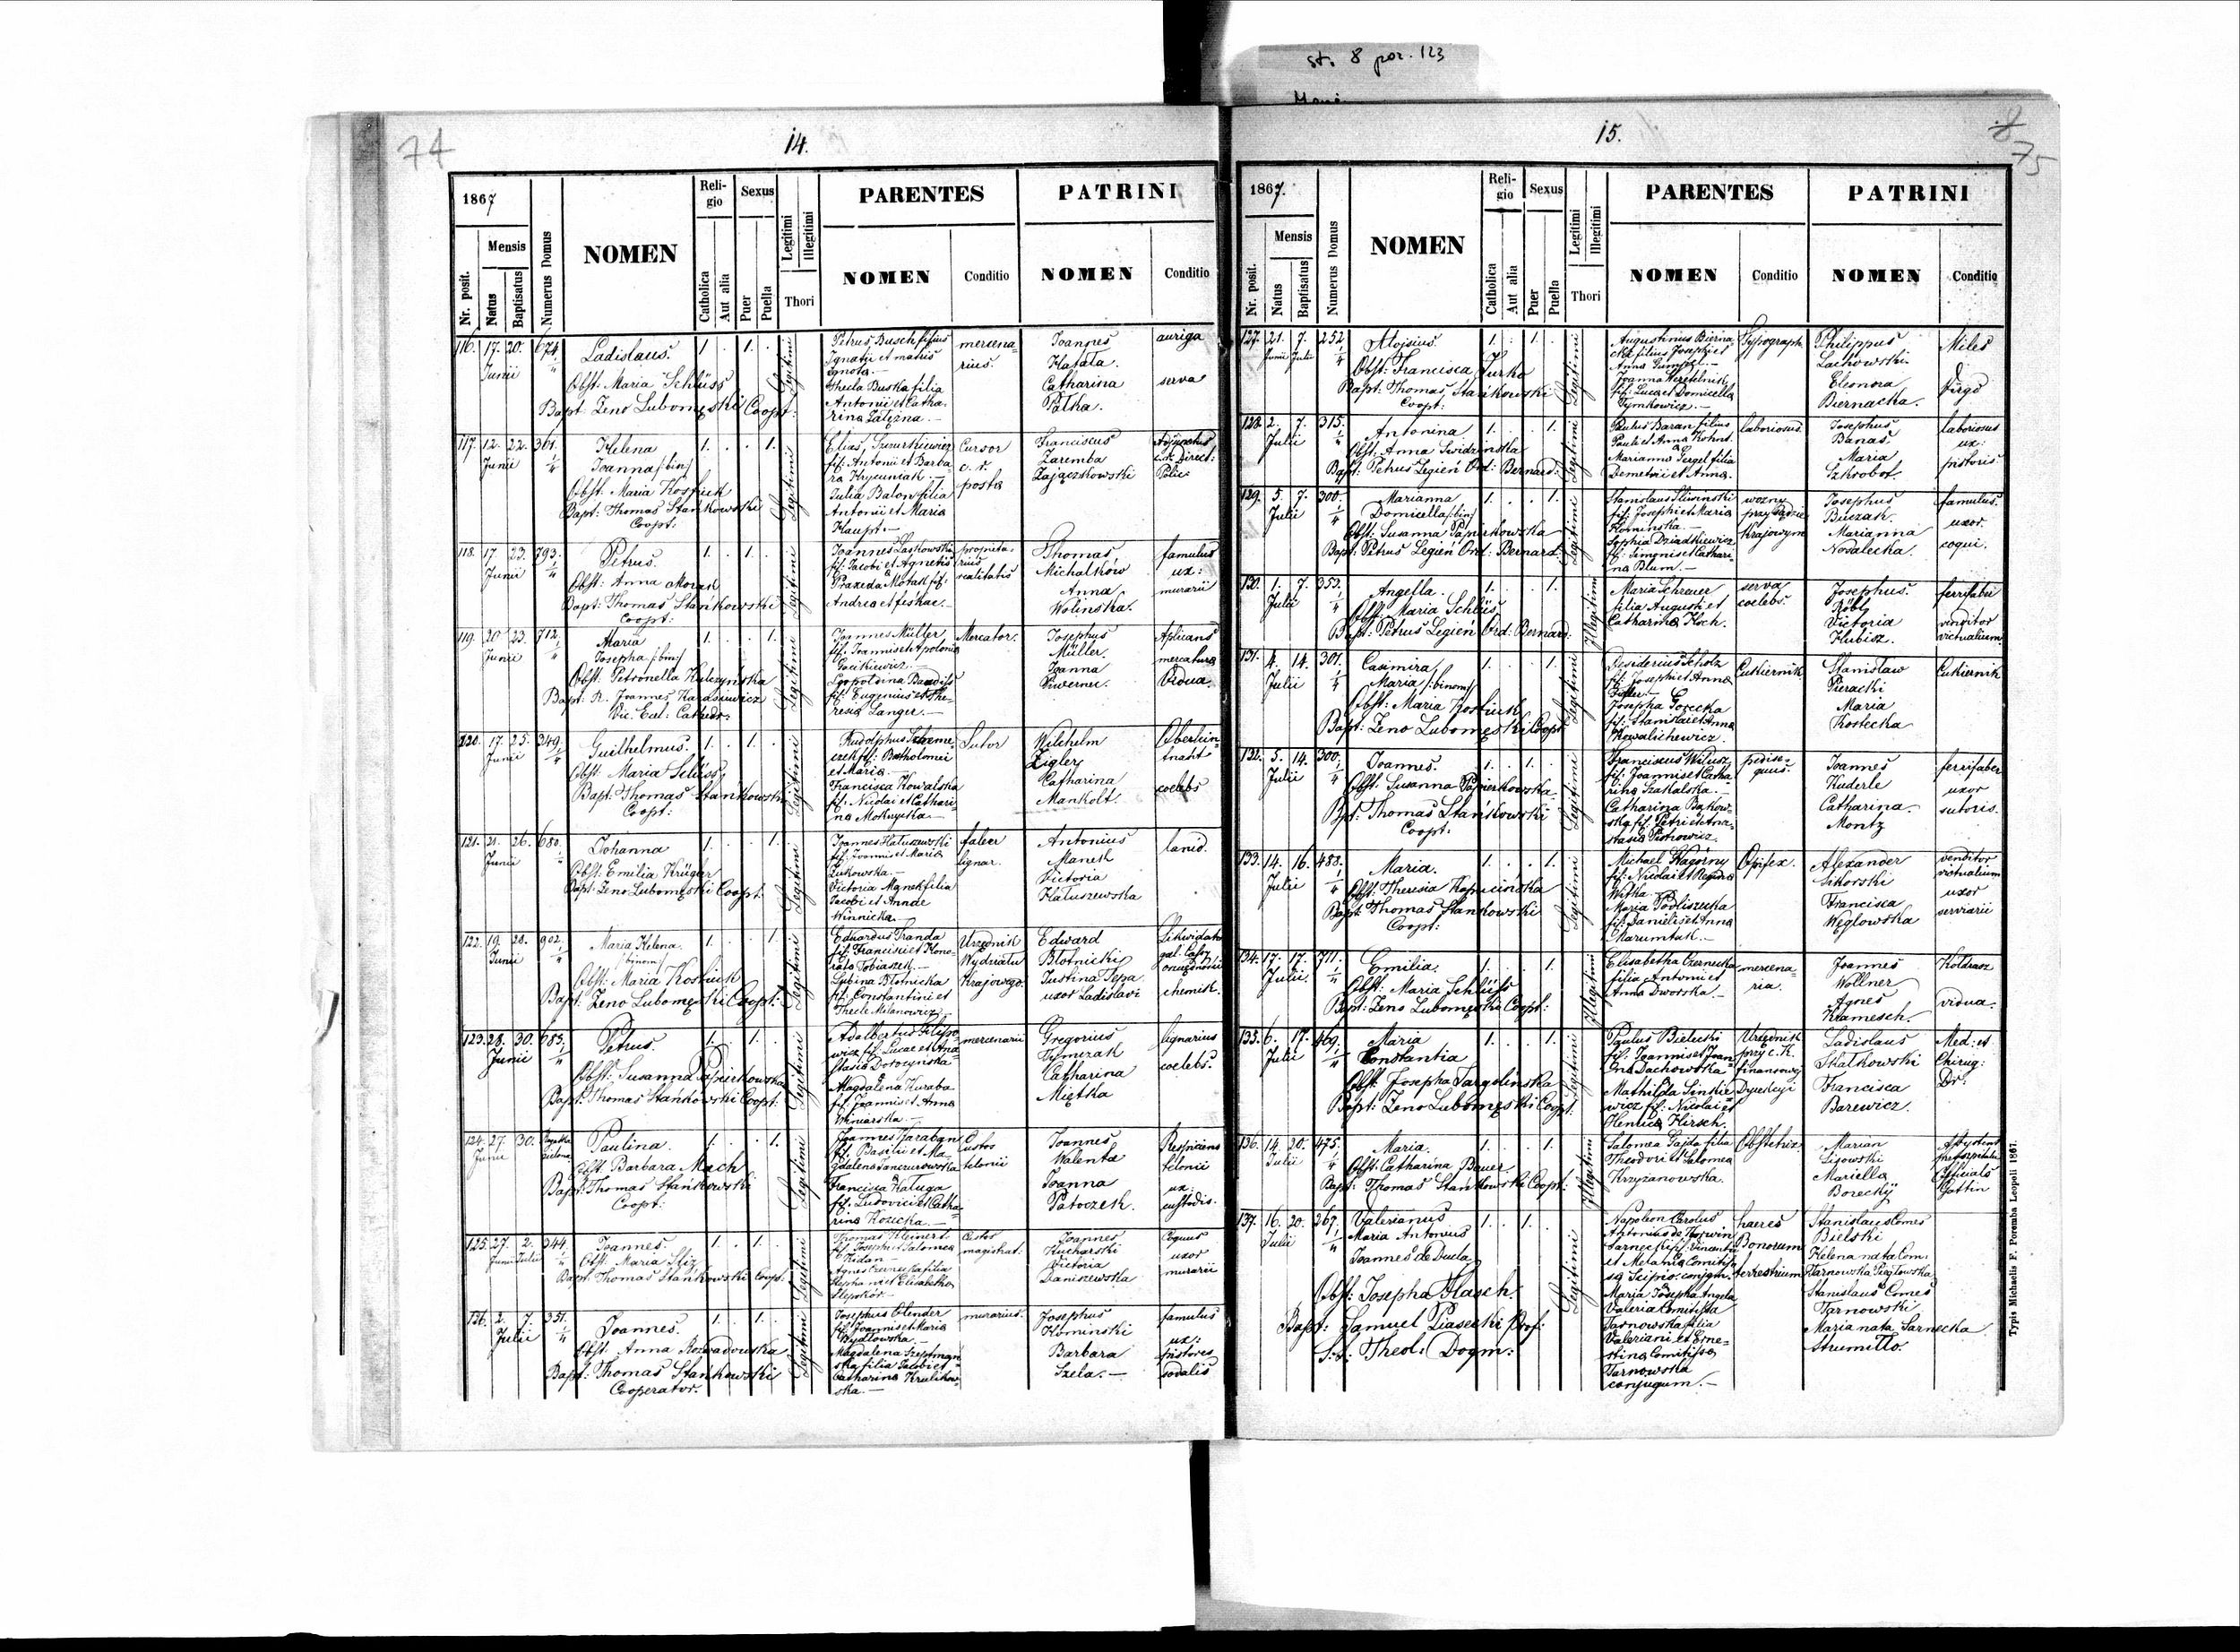 st. 8 poz. 123
74
14.
1867
Nr. posit.
Mensis
Natus
Baptisatus
Numerus Domus
NOMEN
Religio
Catholica
Aut alia
Sexus
Puer
Puella
Legitimi
Illegitimi
Thori
PARENTES
NOMEN
Conditio
PATRINI
NOMEN
Conditio
116. 17. 20. 674
Junii
Ladislaus.
Obst: Maria Schlüss
Bapt: Zeno Lubomęski Coopt:
1 . 1. .
Legitimi
Petrus Busch filius
Ignatii et matris
ignota.
Thecla Buska filia
Antonii et Catha-
rina
mercena-
rius.
Joannes
Hatala
Catharina
Patka.
auriga
serva
117. 12. 22. 361.
Junii
Helena
Joanna /:bin:/
Obst: Maria Kosiuk
Bapt: Thomas Stańkowski
Coopt:
1. . . 1.
Legitimi
Elias
fil: Antonii et Barba-
ra
Julia Balow filia
Antonii et Maria
Haupt.
Cursor
c. r.
posta
Franciscus
Zaremba
Zajączkowski
Direct:
Polic
118. 17. 23. 793.
Junii
Petrus.
Obst: Anna Morak
Bapt: Thomas Stańkowski
Coopt:
1. . 1. .
Legitimi
Joannes Laskowski
fil: Jacobi et Agnetis
Praxeda Motak fil:
Andrea et
proprieta-
rius
realitatis
Thomas
Michalków
Anna
Wolinska.
famulus
ux:
murarii
119. 20 23. 712.
Junii
Maria
Josepha /:bin:/
Obst: Petronella Kulczyńska
Bapt: R. Joannes Haraskiewicz
Vic. Eccl: Cathedr:
1. . . 1.
Legitimi
Joannes Müller
fil: Joannis et Apolonia
Leopoldina
fil: Eugenius et The-
resia Langer.
Mercator.
Josephus
Müller.
Joanna
Piwerner.
Aplicans
mercatura
Vidua.
120. 17. 25. 349.
Junii
Guilhelmus.
Obst: Maria Schlüss
Bapt: Thomas Stańkowski
Coopt:
1. . 1. .
Legitimi
Rudolphus
fil: Bartholomei
et Maria.
Francisca Kowalska
fil: Nicolai et Cathari-
na
Sutor
Wilchelm
Zigler
Catharina
Mankolt.
Oberleut-
nant
coelebs
121. 21. 26. 680.
Junii
Johanna
Obst: Emilia Krüger
Bapt: Zeno Lubomęski Coopt:
1. . . 1.
Legitimi
Joannes Hatuszewski
fil: Joannis et Maria
Zukowska
Victoria Manek filia
Jacobi et Annae
Winnicka.
faber
lignar.
Antonius
Manek
Victoria
Hatuszewska
lanio.
122. 19. 28. 902.
Junii
Maria Helena.
/:binom:/
Obst: Maria Kosiuk
Bapt: Zeno Lubomęski Coopt:
1. . . 1.
Legitimi
Eduardus Franda
fil: Francisci et Hono-
rata Tobiaszek.
Sabina Błotnicka
fil: Constantini et
Thecle Milanowicz.
Urzędnik
Wydziału
Krajowego.
Edward
Błotnicki
Justina Tepa
uxor Ladislai
Likwidator
chemik.
123. 28. 30. 685.
Junii
Petrus.
Obst: Susanna Papierkowska
Bapt: Thomas Stańkowski Coopt:
1. . 1. .
Legitimi
Adalbertus Filipo-
wicz fil: Lucae et Ana-
stasia
Magdalena Kuraba
fil: Joannis et Anna
Winiarska.
mercenarii
Gregorius
Tymczak
Catharina
Miętka
lignarius
coelebs.
124. 27. 30. Rogatka
Junii
Paulina.
Obst: Barbara Mach
Bapt: Thomas Stańkowski
Coopt:
1. . . 1.
Legitimi
Joannes Haraban
fil: Basilii et Ma-
gdalena
Francisca Kaługa
fil: Ludovici et Catha-
rina Kozicka.
Custos
telonii
Joannes
Walenta
Joanna
Patoczek.
telonii
ux:
custodis.
125. 27. 2. 344.
Junii Julii
Joannes.
Obst: Maria Sliz
Bapt: Thomas Stańkowski Coopt:
1. . 1.
Legitimi
Thomas Kleinert
fil: Josephi et Salomea
Agnes Czernecka filia
Stephani et Elisabetha
custos
magistrat.
Joannes
Kucharski
Victoria
Daniszewska
Coquus
uxor
murarii
126. 2. 7. 351.
Julii
Joannes.
Obst: Anna Rozwadowska
Bapt: Thomas Stańkowski
Cooperator.
1. . 1. .
Legitimi
Josephus Olender
fil: Joannis et Maria
Bydłowska.
Magdalena
filia Jacobi et
Catharina Krulikow-
ska.
murarius.
Josephus
Kominski
Barbara
Szela.
famulus
ux:
pistores
sodalis
8
75
15.
1867.
Nr. posit.
Mensis
Natus
Baptisatus
Numerus Domus
NOMEN
Religio
Catholica
Aut alia
Sexus
Puer
Puella
Legitimi
Illegitimi
Thori
PARENTES
NOMEN
Conditio
PATRINI
NOMEN
Conditio
127. 21. 7. 252
Junii Julii
Aloisius
Obst: Francisca Jurka
Bapt: Thomas Stańkowski
Coopt:
1. . 1. .
Legitimi
Augustinus Bierna-
cki filius Josephi et
Anna
Joanna
fil: Luca et Domicella
Tymkowicz.
Typograph.
Philippus
Lachowski.
Eleonora
Biernacka.
Miles
Virgo
128. 2. 7. 315.
Julii
Antonina
Obst: Anna Swidzinska
Bapt: Petrus Legień Ord: Bernard:
1. . . 1.
Legitimi
Paulus Baran filius
Pauli et Anna Kohnt.
Marianna Gergel filia
Demetrii et Anna.
laboriosus.
Josephus
Banaś
Maria
Szkrobot.
laboriosus
ux:
pistoris
129. 5. 7. 300.
Julii
Marianna
Domicella /:bin:/
Obst: Susanna Papierkowska
Bapt: Petrus Legień Ord: Bernard:
1. . . 1.
Legitimi
Stanislaus
fil: Josephi et Maria
Kominska.
Sophia Dziadkiewicz
fil: Simonis et Cathari-
na Blum.
wozny
przy Sądzie
Krajowym
Josephus
Buczak.
Marianna
Novalecka.
famulus
uxor.
coqui.
130. 1. 7. 353.
Julii
Angella.
Obst: Maria Schlüs
Bapt: Petrus Legień Ord: Bernard:
1. . . 1.
Illegitimi
Maria Schreuer
filia Augusti et
Catharina Koch.
serva
coelebs.
Josephus.
Röbl
Victoria
Hubisz.
ferrifabri
venditor
victualium
131. 4. 14. 301.
Julii
Casimira
Maria /:binom:/
Obst: Maria Kosiuk
Bapt: Zeno Lubomęski Coopt:
1. . . 1.
Legitimi
Desiderius Scholz
fil: Josephi et Anna
Josepha Gorecka
fil: Stanislai et Anna
Kowalichewicz.
Cukiernik
Stanisław
Pieracki
Maria
Kostecka
Cukiernik
132. 5. 14. 300.
Julii
Joannes.
Obst: Susanna Papierkowska
Bpt: Thomas Stańkowski
Coopt:
1. . 1. .
Legitimi
Franciscus Wilusz
fil: Joannis et Catha-
rina Szakalska.
Catharina Bąkow-
ska fil: Petri et Ana-
stasia Piotrowicz.
pedise-
quus.
Joannes
Kuderle
Catharina
Montz
ferrifaber
uxor
sutoris.
133. 14. 16. 488.
Julii
Maria.
Obst: Theresia Kopicińska
Bapt: Thomas Stańkowski
Coopt:
1. . . 1.
Legitimi
Michael Zagórny
fil: Nicolai et Regina
Witka.
Maria Podliszecka
fil: Danielis et Anna
Marumtak.
Opifex.
Alexander
Sikorski
Francisca
Węglowska
venditor
victualium
uxor
serviarii
134. 17. 17. 711.
Julii
Emilia.
Obst: Maria Schlüss
Bapt: Zeno Lubomęski Coopt:
1. . . 1.
Illegitimi
Elisabetha Czernecka
filia Antonii et
Anna Dworska.
mercena-
ria.
Joannes
Wollner
Agnes
Kramesch.
Kołdrasz
vidua.
135. 6. 17. 469.
Julii
Maria
Constantia
Obst: Josepha Targolinska
Bapt: Zeno Lubomęski Coopt:
1. . . 1.
Legitimi
Paulus Bielecki
fil: Joannis et Joan-
na Dachowska
Mathilda Sinkie-
wicz fil: Nicolai et
Henrica Hirsch.
Urzędnik
przy c. K.
finansowej
Dyrekcyi
Ladislaus
Skałkowski
Francisca
Barewicz.
Med: et
Chirug:
Dr:
136. 14. 20. 475.
Julii
Maria.
Obst: Catharina Bauer.
Bapt: Thomas Stańkowski Coopt:
1. . . 1.
Illegitimi
Salomea Gajda filia
Theodori et Salomea
Krzyżanowska.
Obstetrix.
Marian
Lisowski
Mariella
Borecky
Officials
Gattin
137. 16. 20. 267.
Julii
Valerianus
Maria Antonius
Joannes de Ducla
Obst: Josepha Flasch.
Bapt: Samuel Piasecki Prof:
S.s: Theol: Dogm:
1. . 1.
Legitimi
Napoleon Carolus
Antonius de Korwin
Sarnecki fil: Vincentii
et Melania Comitis-
sa Scipio. conjgm.
Maria Josepha Angela
Valeria Comitissa
Tarnowska filia
Valeriani et Erne-
stina Comitissa
Tarnowska
conjugum.
haeres
Bonorum
terrestrium
Stanislaus Comes
Bielski
Helena nata Com:
Tarnowska
Stanislaus Comes
Tarnowski
Maria nata Sarnecka
Strumiłło.
Typis Michaelis F. Poremba Leopoli 1867.